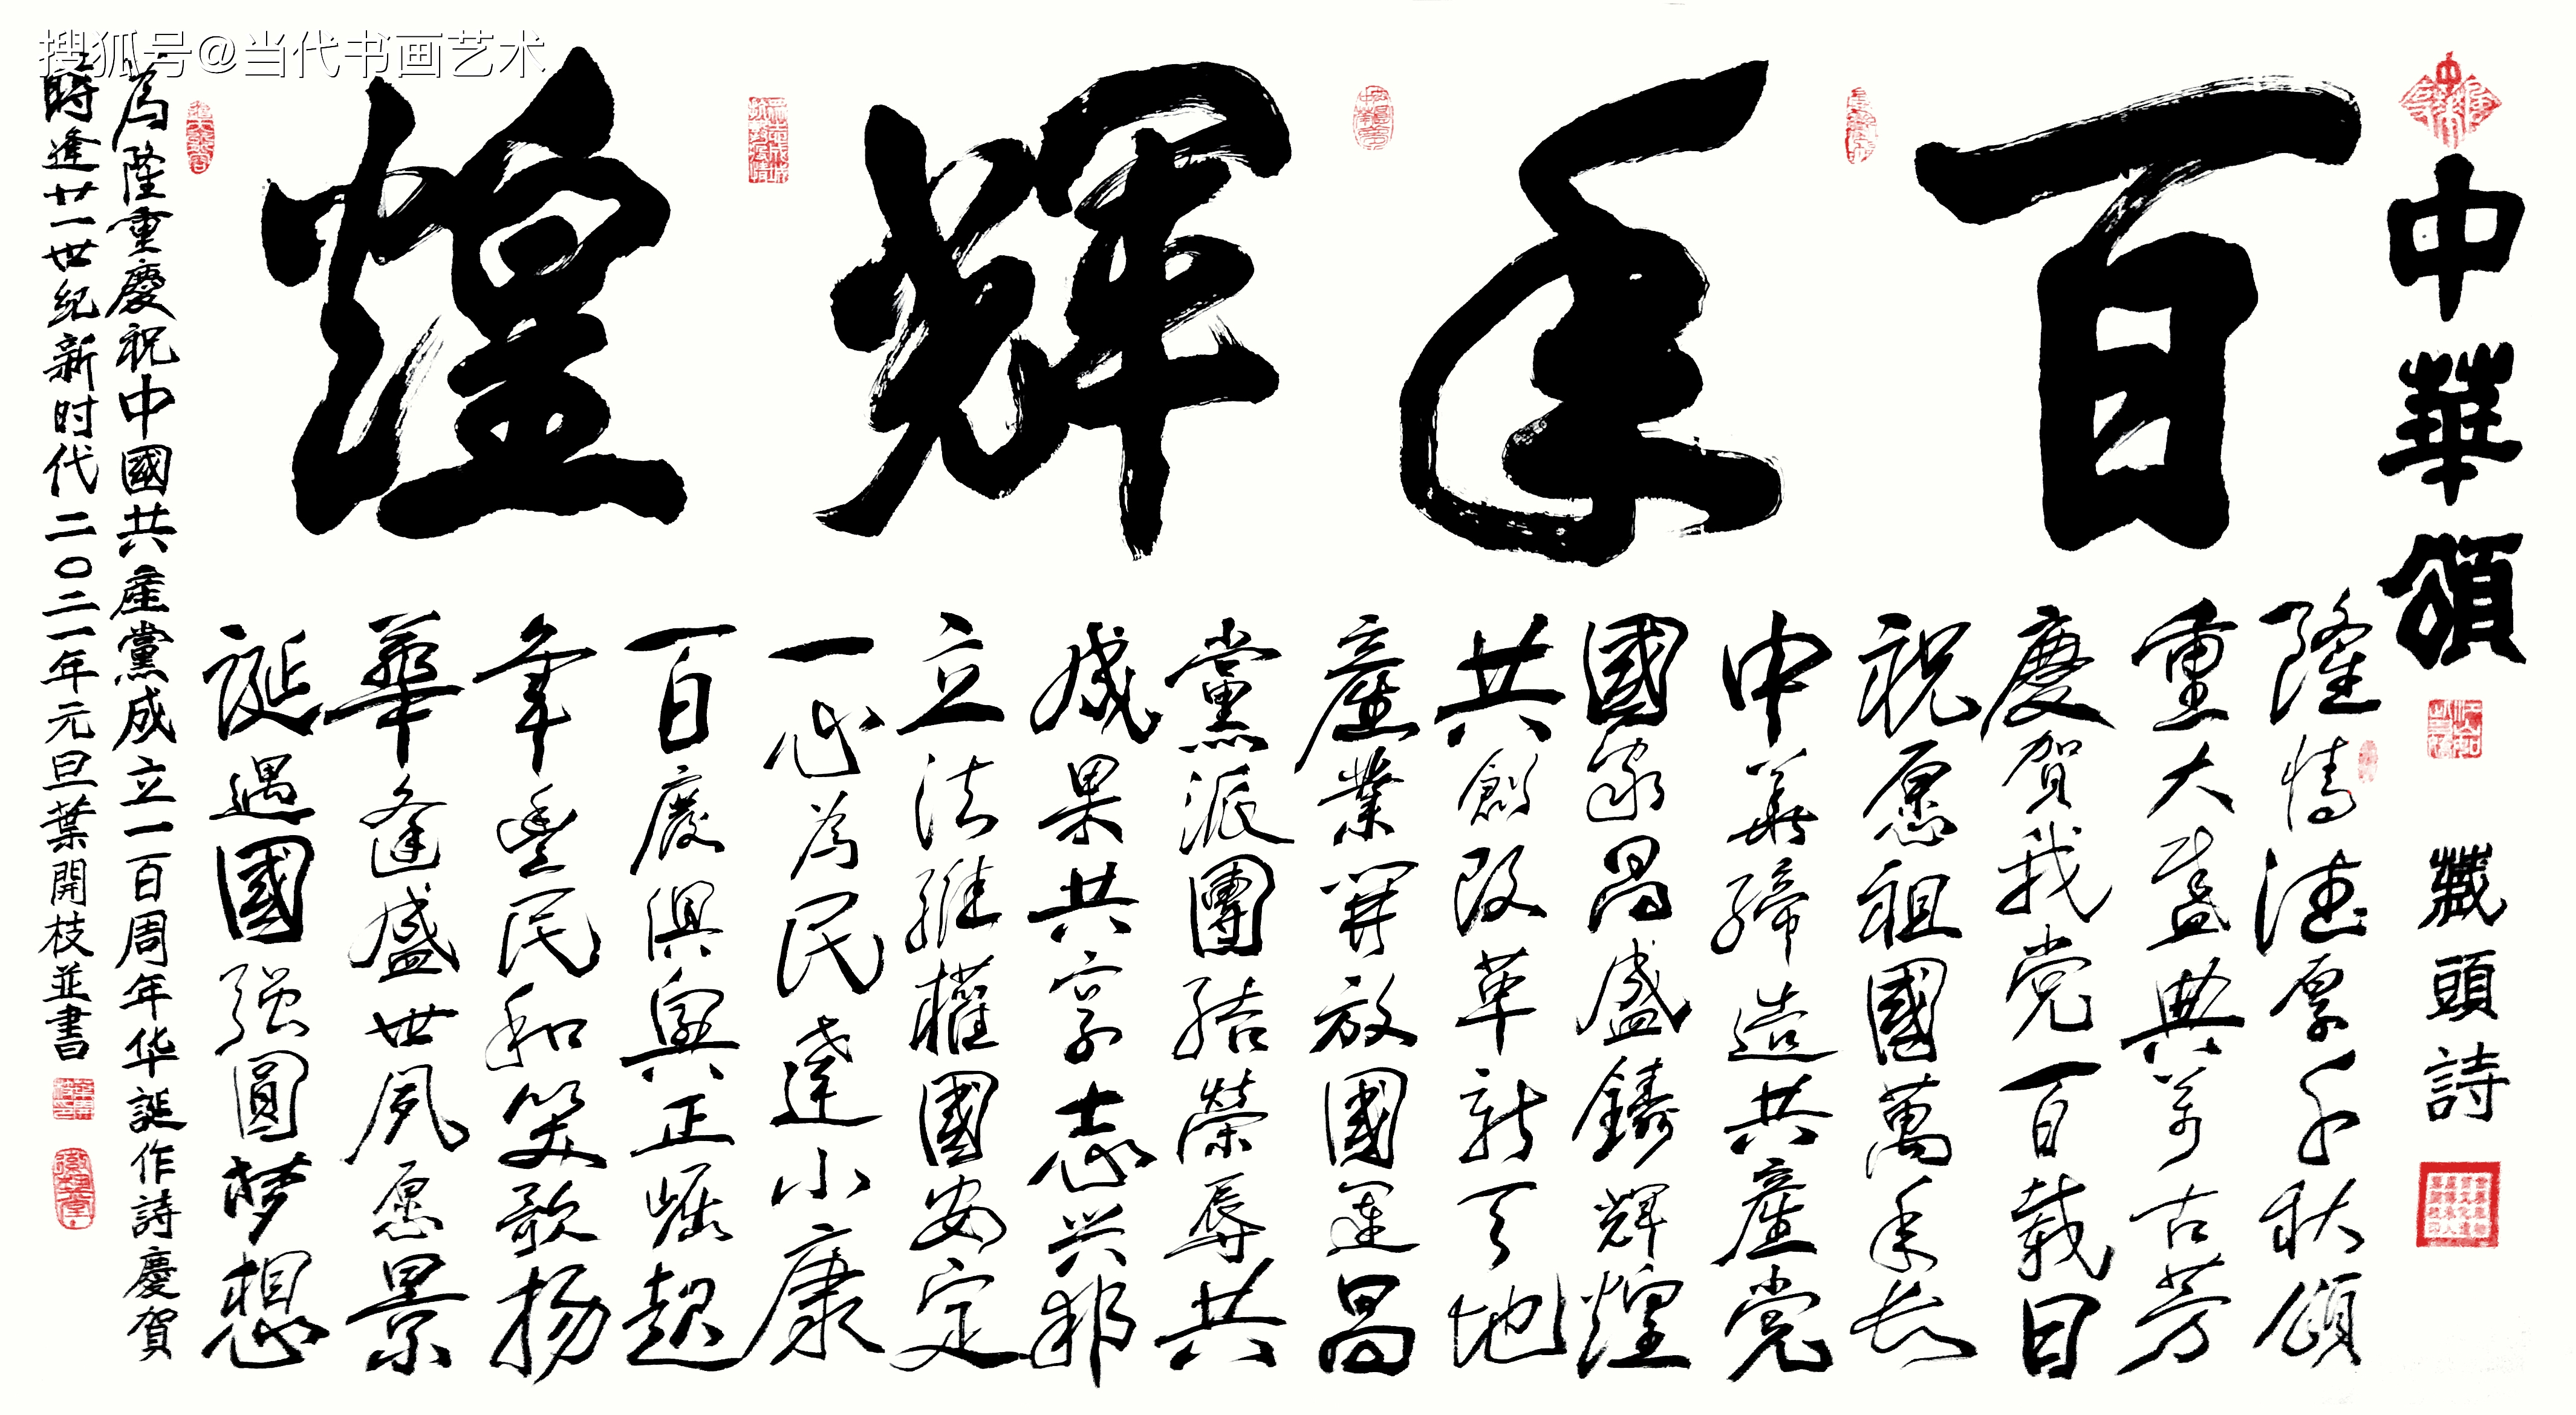 搜狐号@当代书画艺术
中華頌
藏頭詩
百年輝煌
隆情德厚千秋頌
重大盛典萬古芳
慶賀我党百載日
祝愿祖國萬年長
中華締造共產党
國家昌盛鑄輝煌
共創改革新天地
產業開放國運昌
黨派團結榮辱共
成果共享志兴邦
立法維權國安定
一心為民達小康
百廢俱興正崛起
年豐民和笑歌揚
華逢盛世夙愿景
誕遇國强圓梦想
為隆重慶祝中國共產黨成立一百周年华誕作詩慶賀
時逢廿一世紀新时代二〇二一年元旦葉開枝並書